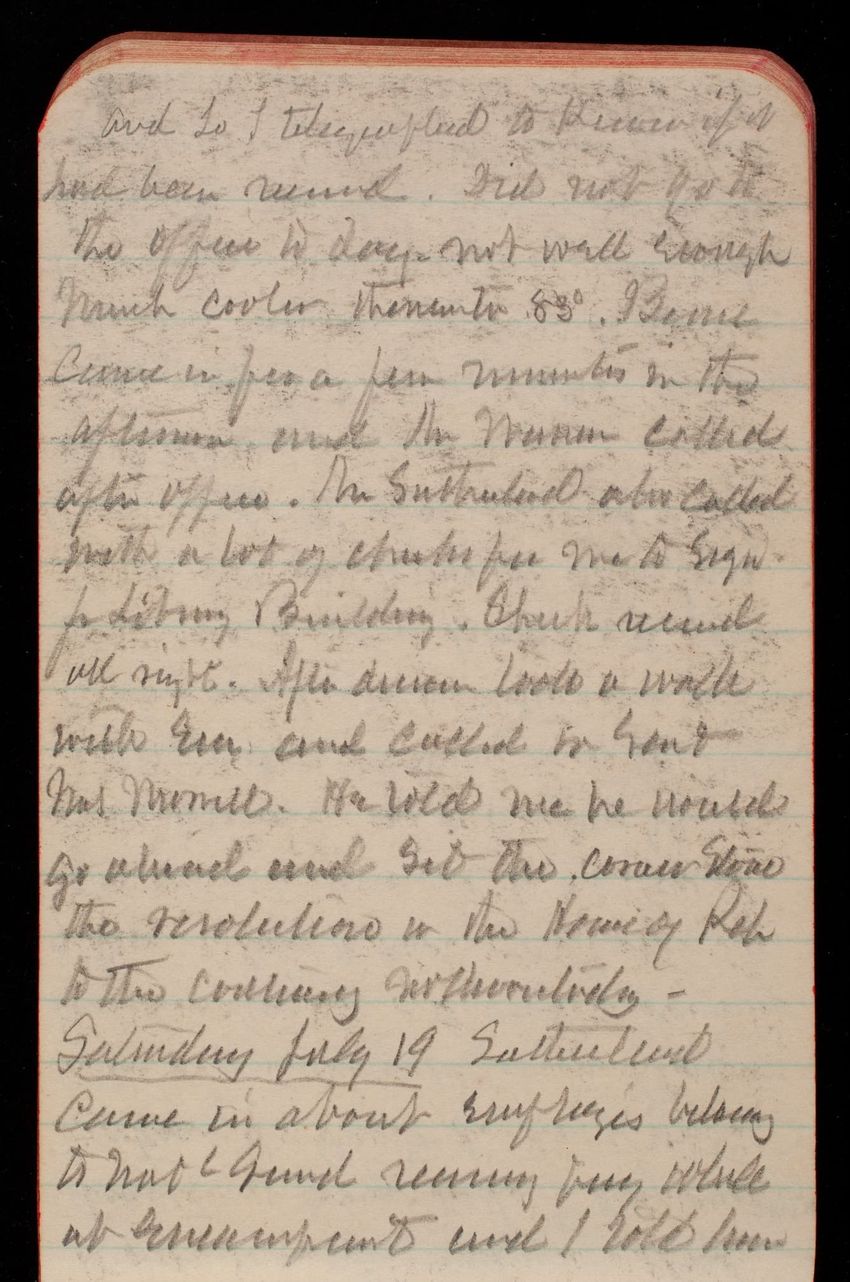 and so I telegraphed to Kiernan if it
had been received. Did not go to
the office to day - not well enough
Much cooler thermomtr 83°. Bernie
Came in for a few minutes in the
afternoon and Mr Warren called
after office. Mr Sutherland also called
with a lot of checks for me to sign
for Library Building. Check received
all right. After dinner took a walk
with Eva and called on Senat
Morrill. He told me he would
go ahead and get the corner Stone
the resolution in the House of Rep
to the contrary notwithstanding -
Saturday July 19 Sutherland
came in about employes belong
to Natl Guard receiving pay while
at Encampment and I told him